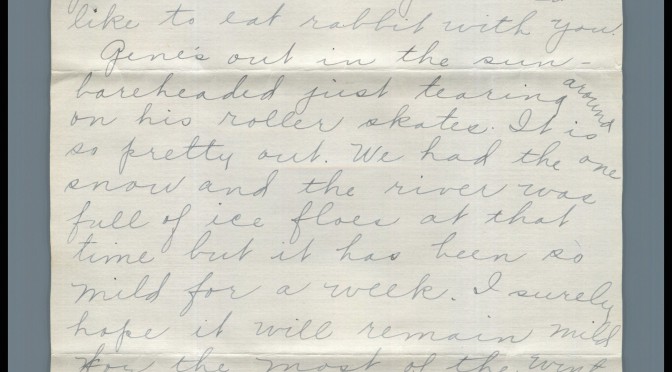 like to eat rabbit with you.
Gene's out in the sun -
bareheaded just tearing around
on his roller skates. It is
so pretty out. We had the one
snow and the river was
full of ice floes at that
time but it has been so
mild for a week. I surely
hope it will remain mild
for the most of the wint